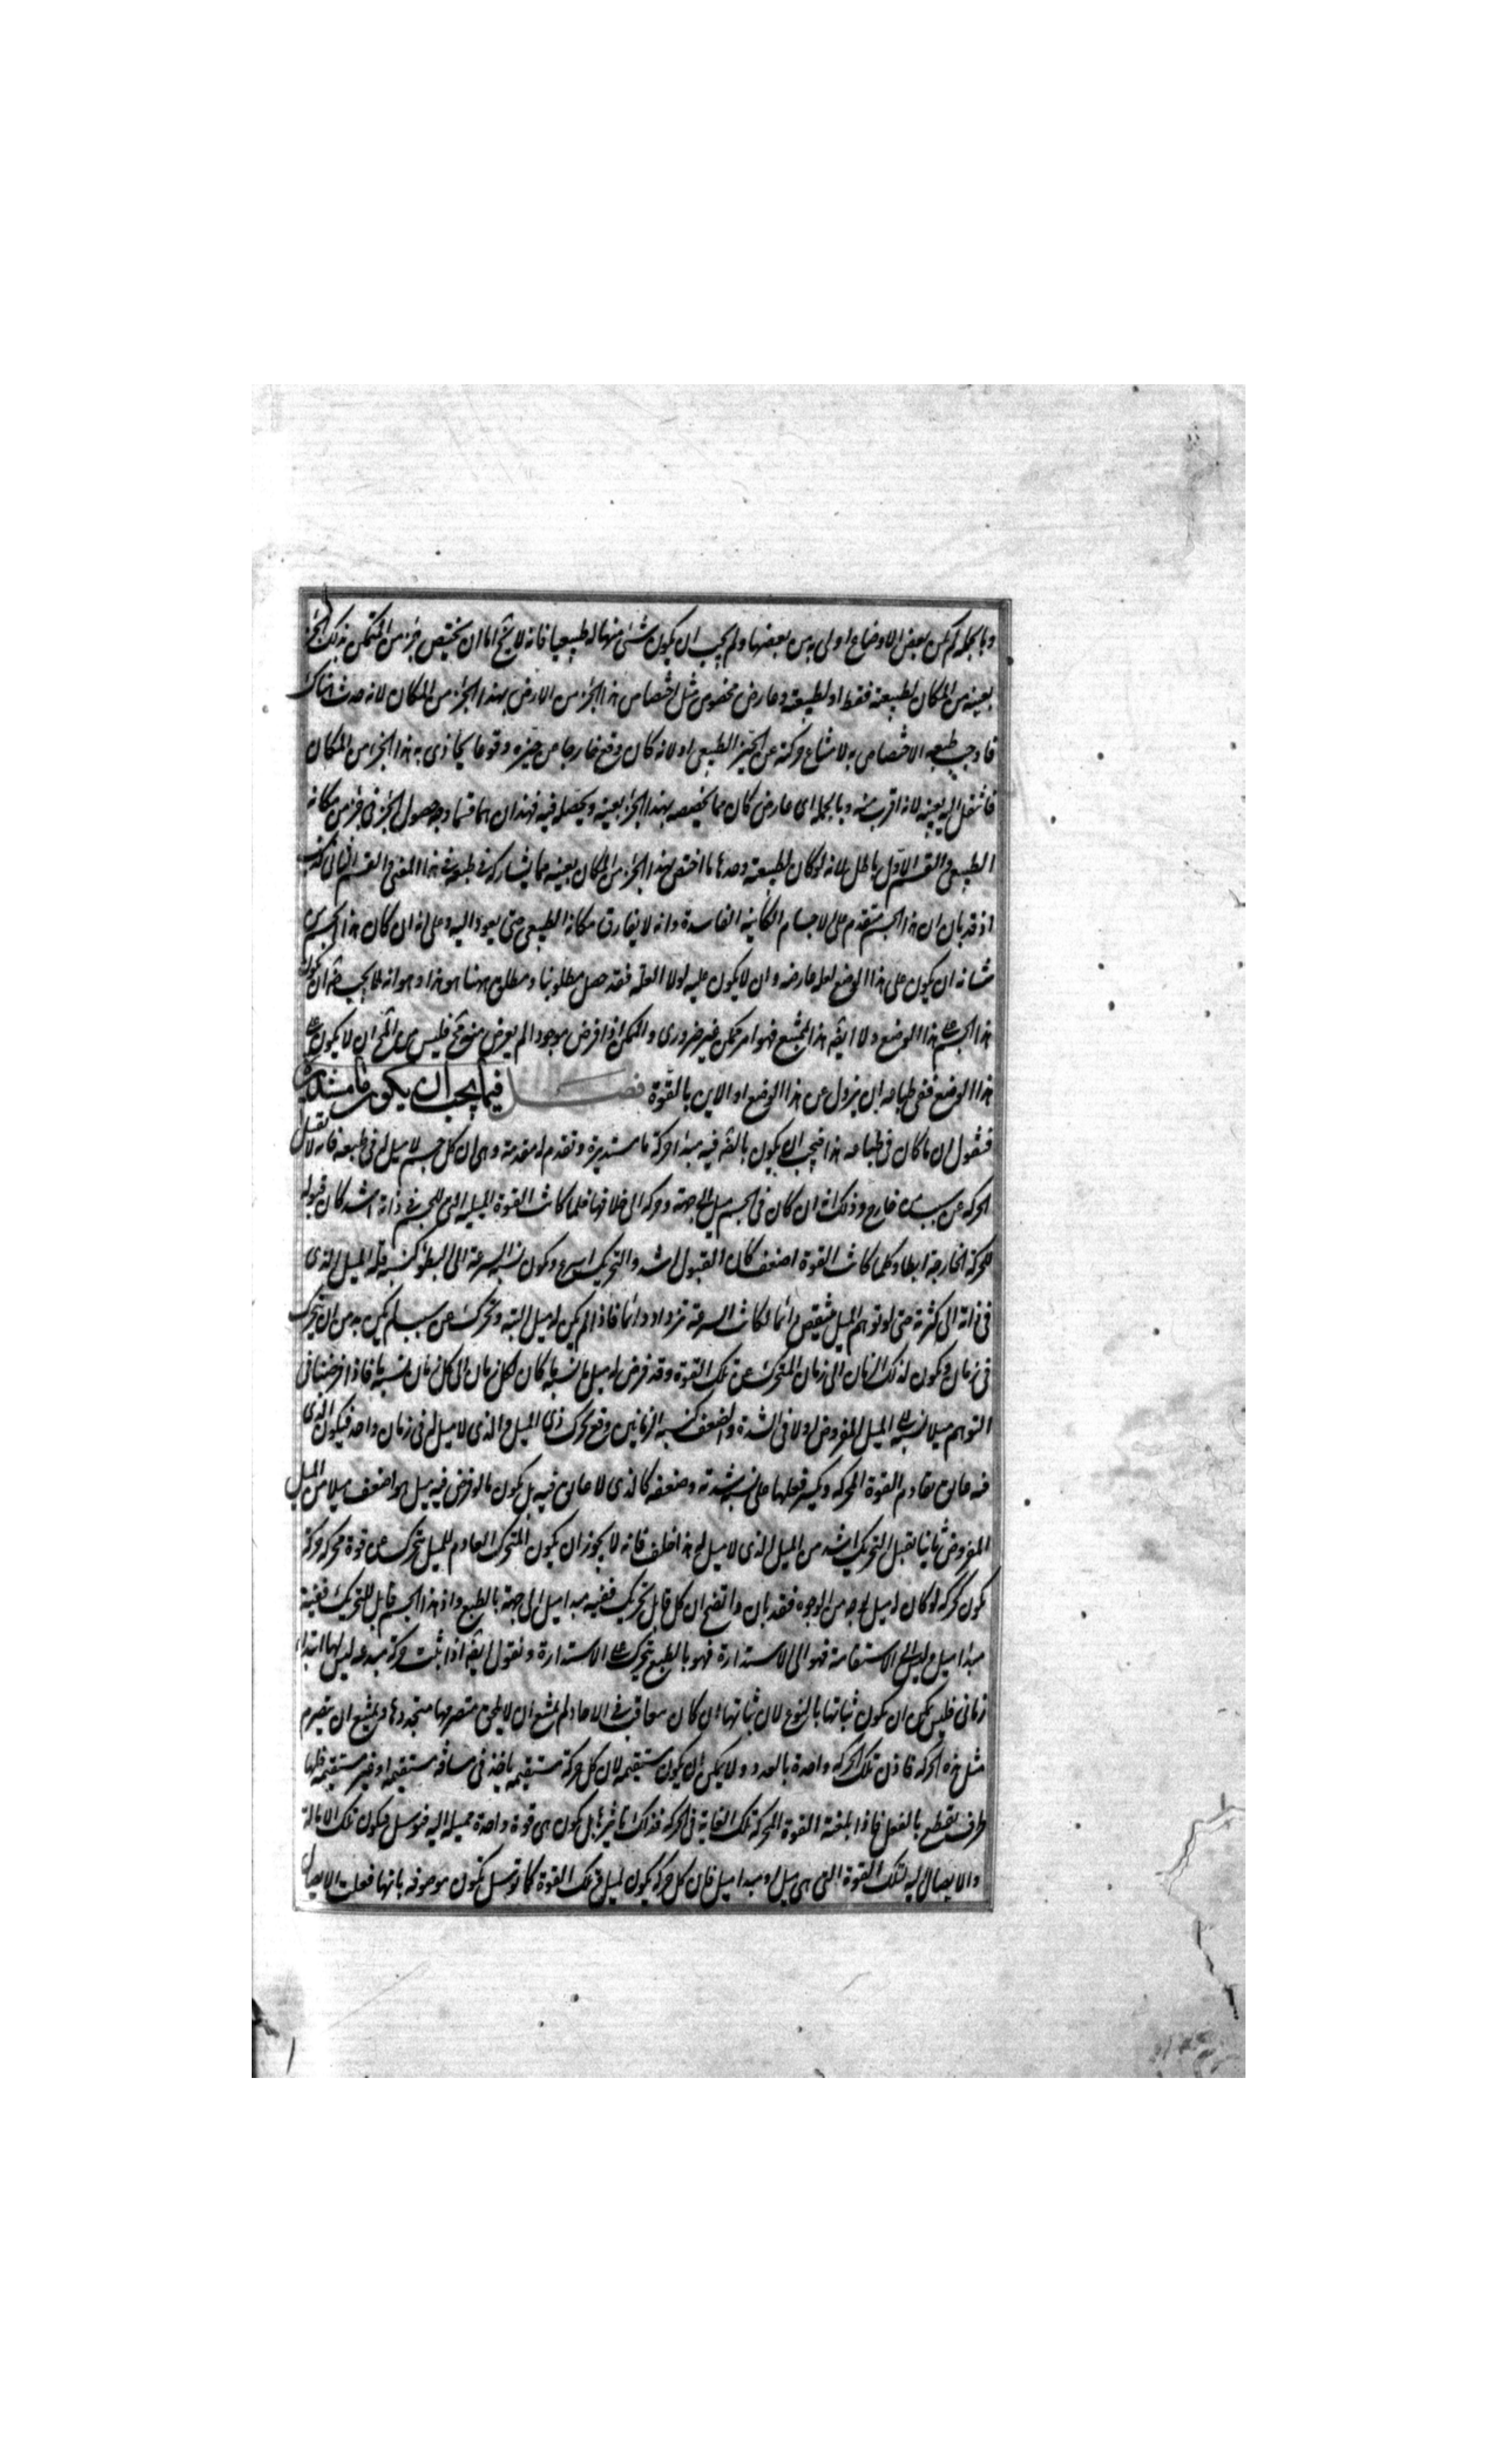 وبالجملة لم يكن بعض الاوضاع اولى به من بعضها ولم يجب ان يكون شئ منها له طبيعيا فانه لا يخ اما ان يختص جزء من المتمكن بذلك الجزء
بعينه من المكان لطبيعته فقط او لطبيعته وعارض مخصوص مثل اختصاص هذا الجزء من الارض بهذا الجزء من المكان لانه حدث هناك
فاوجب طبيعته الاختصاص به لامتناع حركته عن الحيز الطبيعى او لانه كان وقع خارجا عن حيزه وقوعا يحاذى به هذا الجزء من المكان
فانتقل اليه بعينه لانه اقرب منه وبالجملة اى عارض كان مما يخصصه بهذا الجزء بعينه ويحصله فيه فهذان هما قسما وجه حصول الجزء فى جزء من مكانه
الطبيعى والقسم الاول باطل لانه لو كان لطبيعته وحدها ما اختص بهذا الجزء من المكان بعينه مما يشاركه فى طبيعته فى هذا المعنى والقسم الثانى كذب
اذ قد بان ان هذا الجسم متقدم على الاجسام الكائنة الفاسدة وانه لا يفارق مكانه الطبيعى حتى يعود اليه وعلى انه ان كان هذا الجسم من
شانه ان يكون على هذا الوضع لعلة عارضة وان لا يكون عليه لولا العلة فقد حصل مطلوبنا ومطلوبى ههنا هو هذا وهو انه لما لم يجب ان يكون
هذا الجسم على هذا الوضع ولا ايضه هذا الممتنع فهو امر ممكن غير ضرورى والممكن اذا فرض موجودا لم يعرض منه مح فليس من المح ان لا يكون على
هذا الوضع ففى طباعه ان يزول عن هذا الوضع او الاين بالقوة فصل فيما يجب ان يكون فيه مبدا
فنقول ان ما كان فى طباعه هذا فيجب ان يكون بالقه فيه مبدا حركة ما مستديرة وتقدم له مقدمة وهى ان كل جسم لا ميل له فى طبعه فانه لا يقبل
الحركة عن سبب خارج وذلك انه ان كان فى الجسم ميل الى جهة وحركة الى خلافها فكلما كانت القوة الميلية التى للجسم فى ذاته اشد كان قبوله
للحركة الخارجة ابطا وكلما كانت القوة اضعف كان القبول اشد والتحريك اسرع وتكون نسبة السرعة الى البطؤ كنسبة قلة الميل الذى
فى ذاته الى كثرته حتى لو توهم الميل ينتقص دائما لكانت السرعة تزداد دائما فاذا لم يكن له ميل البتة وتحرك عن سبب لم يكن بد من ان يتحرك
فى زمان ويكون لذلك الزمان الى زمان المتحرك عن تلك القوة وقد فرض له ميل ما نسبة ما كان لكل زمان الى كل زمان نسبة ما فاذا فرضنا فى
التوهم ميلا نسبته الى الميل المفروض اولا فى الشدة والضعف كنسبة الزمانين وقع تحرك ذى الميل والذى لا ميل له فى زمان واحد فيكون الذى
فيه عائق يقاوم القوة المحركة ويكسر فعلها على نسبة شدته وضعفه كالذى لا عائق فيه بل يكون ما لو فرض فيه ميل هو اضعف ميلا من الميل
المفروض ثانيا يقبل التحريك اشد من الميل الذى لا ميل له هذا خلف فانه لا يجوز ان يكون المتحرك العادم للميل يتحرك عن قوة محركة حركة
يكون كحركة لو كان له ميل بوجه من الوجوه فقد بان واتضح ان كل قابل تحريك ففيه مبدا ميل الى جهة بالطبع واذ هذا الجسم قابل للتحريك ففيه
مبدا ميل وليس الى الاستقامة فهو الى الاستدارة فهو بالطبع يتحرك على الاستدارة ونقول ايضه اذا ثبت حركة مبدعة ليس لها ابتداء
زمانى فليس يمكن ان يكون ثباتها بالنوع لان ثباتها ان كان متعاقب فى الاحاد لم يمتنع ان لا يلحق متصرمها متجددها ويمتنع ان يتصرم
مثل هذه الحركة فاذن تلك الحركة واحدة بالعدد ولا يمكن ان يكون مستقيمة لان كل حركة مستقيمة ياخذ فى مسافة مستقيمة او غير مستقيمة فلها
طرف يقطع بالفعل فاذا بلغته القوة المحركة تلك الغاية فى الحركة فذاك تاثيرها بل يكون هى قوة واحدة مميلة اليه فتوصل ويكون تلك الامالة
والايصال اليه لتلك القوة التى هى ميل او مبدا ميل فان كل حركة يكون لميل وتلك القوة كما توصل يكون موصوفه بانها فعلت الايصال